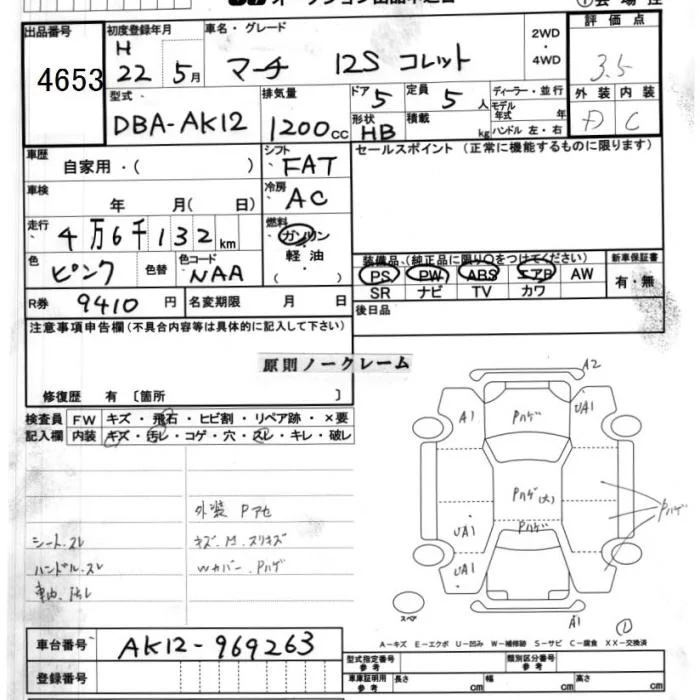 出品番号
4653
初度登録年月
H 22 5月
車名・グレード
マーチ 12S コレット
2WD
・
4WD
評価点
3.5
型式
DBA-AK12
排気量
1200cc
ドア 5
定員 5 人
形状 HB
積載 kg
ディーラー・並行
モデル年式 年
ハンドル 左・右
外装 内装
D C
車歴
自家用・( )
シフト FAT
セールスポイント (正常に機能するものに限ります)
車検
年 月( 日)
冷房 AC
走行
4万6千132km
燃料
ガソリン
軽油
( )
色 ピンク
色替
色コード NAA
装備品 (純正品に限り○をつけてください)
新車保証書
PS PW ABS エアB AW
有・無
SR ナビ TV カワ
R券 9410 円
名変期限 月 日
後日品
注意事項申告欄(不具合内容等は具体的に記入して下さい)
原則ノークレーム
修復歴 有 〔箇所 〕
検査員
記入欄
FW キズ・飛石・ヒビ割・リペア跡・×要
内装 キズ・汚レ・コゲ・穴・スレ・キレ・破レ
A2
A1
Pハゲ
UA1
Pハゲ(大)
Pハゲ
Pハゲ
UA1
UA1
A1
スペア
外装 Pアセ
シート.スレ
キズ.M.スリキズ
ハンドル.スレ
Wカバー.Pハゲ
車内.汚レ
A－キズ E－エクボ U－凹み W－補修跡 S－サビ C－腐食 XX－交換済
車台番号
AK12-969263
登録番号
型式指定番号
参考
類別区分番号
参考
車庫証明用
参考
長さ cm
幅 cm
高さ cm